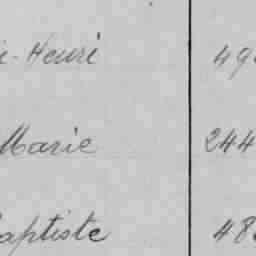 -Henri 49
Marie 244
aptiste 48